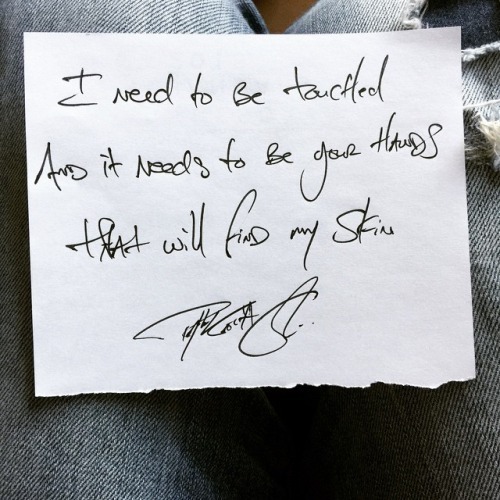 I need to be touched
And it needs to be your hands
that will find my skin